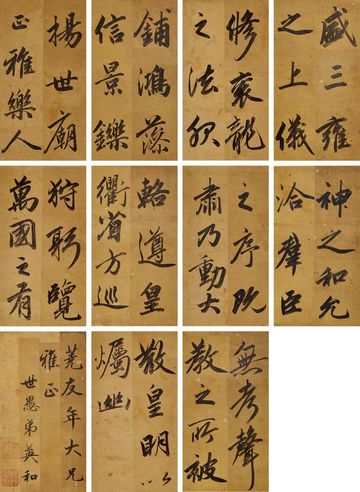 盛三雍
之上儀
脩袞龍
之法服
鋪鴻藻
信景鑠
揚世廟
正雅樂人
神之和允
洽羣臣
之序既
肅乃動大
輅遵皇
衢省方巡
狩躬覽
萬國之有
無考聲
教之所被
散皇明以
爥幽
友年大兄
雅正
世愚弟英和